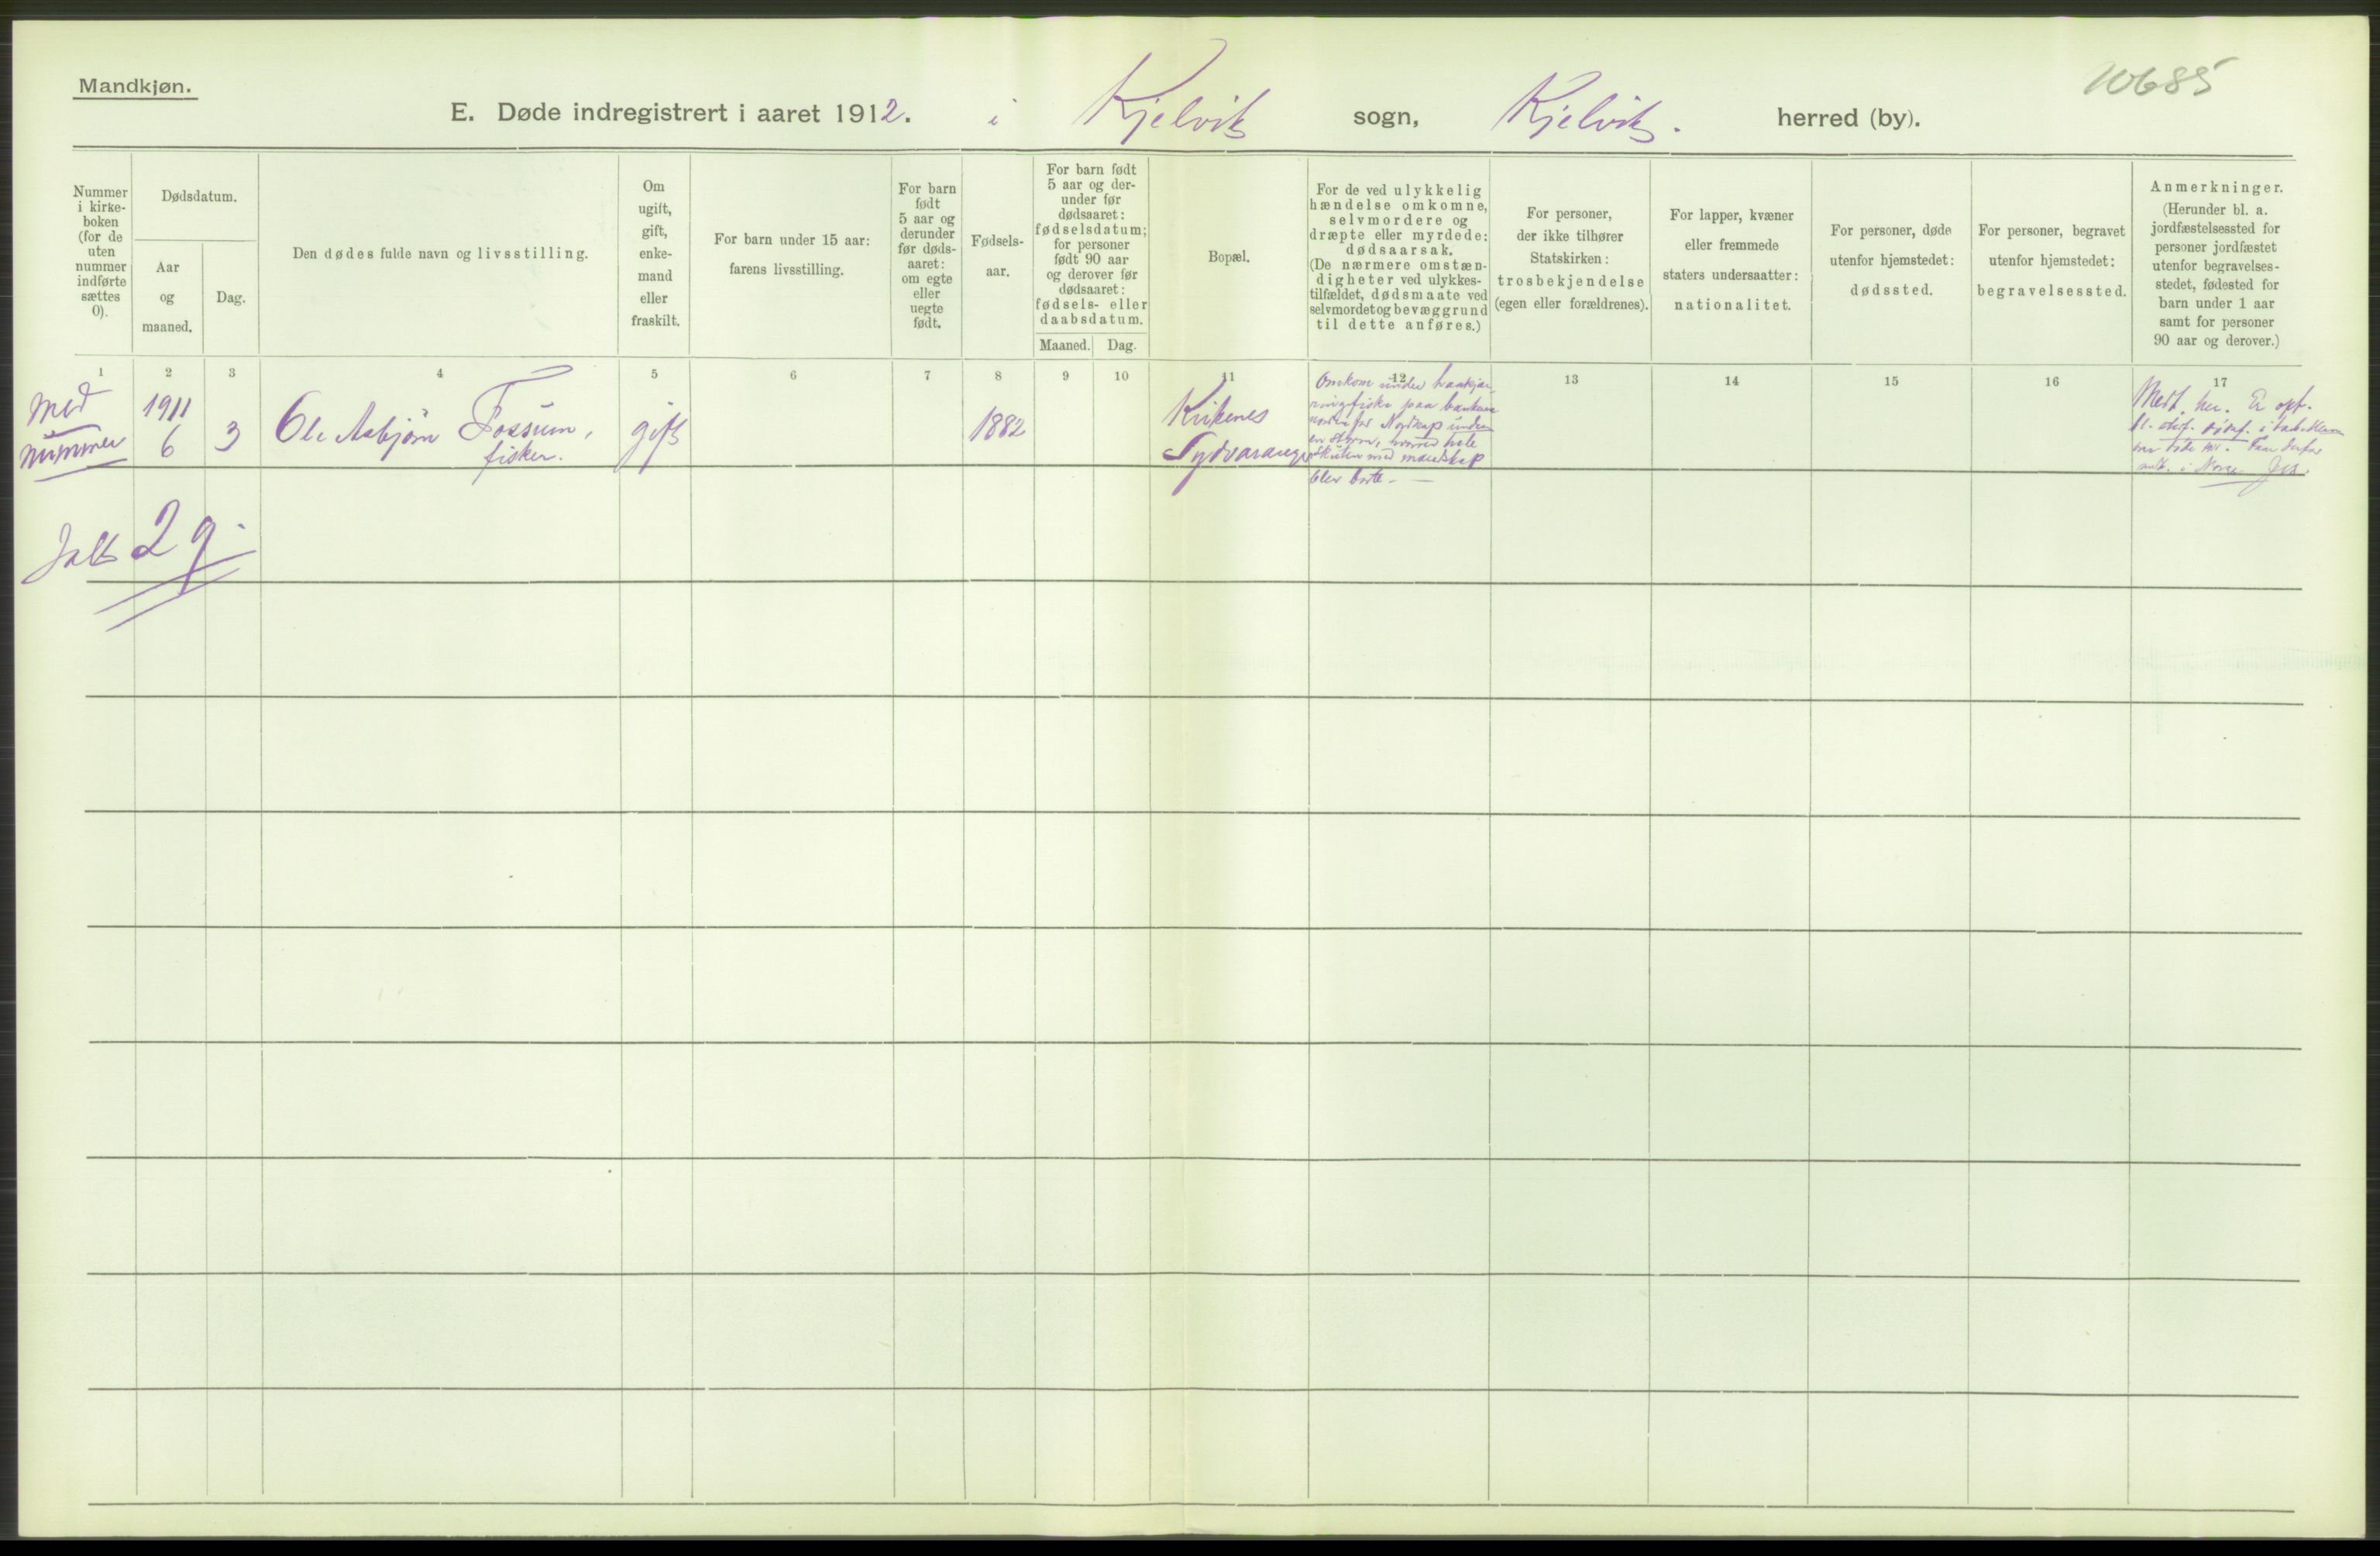 Mandkjøn.
10685
E. Døde indregistrert i aaret 1912. i Kjelvik sogn, Kjelvik. herred (by).
Nummer
i kirke-
boken
(for de
uten
nummer
indførte
sættes
0).
Dødsdatum.
Aar
og
maaned.
Dag.
Den dødes fulde navn og livsstilling.
Om
ugift,
gift,
enke-
mand
eller
fraskilt.
For barn under 15 aar:
farens livsstilling.
For barn
født
5 aar og
derunder
før døds-
aaret:
om egte
eller
uegte
født.
Fødsels-
aar.
For barn født
5 aar og der-
under før
dødsaaret:
fødselsdatum;
for personer
født 90 aar
og derover før
dødsaaret:
fødsels- eller
daabsdatum.
Maaned.
Dag.
Bopæl.
For de ved ulykkelig
hændelse omkomne,
selvmordere og
dræpte eller myrdede:
dødsaarsak.
(De nærmere omstæn-
digheter ved ulykkes-
tilfældet, dødsmaate ved
selvmordet og bevæggrund
til dette anføres.)
For personer,
der ikke tilhører
Statskirken:
trosbekjendelse
(egen eller forældrenes).
For lapper, kvæner
eller fremmede
staters undersaatter:
nationalitet.
For personer, døde
utenfor hjemstedet:
dødssted.
For personer, begravet
utenfor hjemstedet:
begravelsessted.
Anmerkninger.
(Herunder bl. a.
jordfæstelsessted for
personer jordfæstet
utenfor begravelses-
stedet, fødested for
barn under 1 aar
samt for personer
90 aar og derover.)
1 2 3 4 5 6 7 8 9 10 11 12 13 14 15 16 17
Med
nummer
1911
6
3
Ole Asbjørn Fossum,
fisker.
gift
1882
Kirkenes
Sydvaranger
Omkom under haakjær
ringfiske paa bankerne
nordenfor Nordkap under
en storm, hvorved hele
skuten med mandskap
blev borte. —
Medt. her. Er opf.
i
døde 1911.
i Norge
Ialt 29.